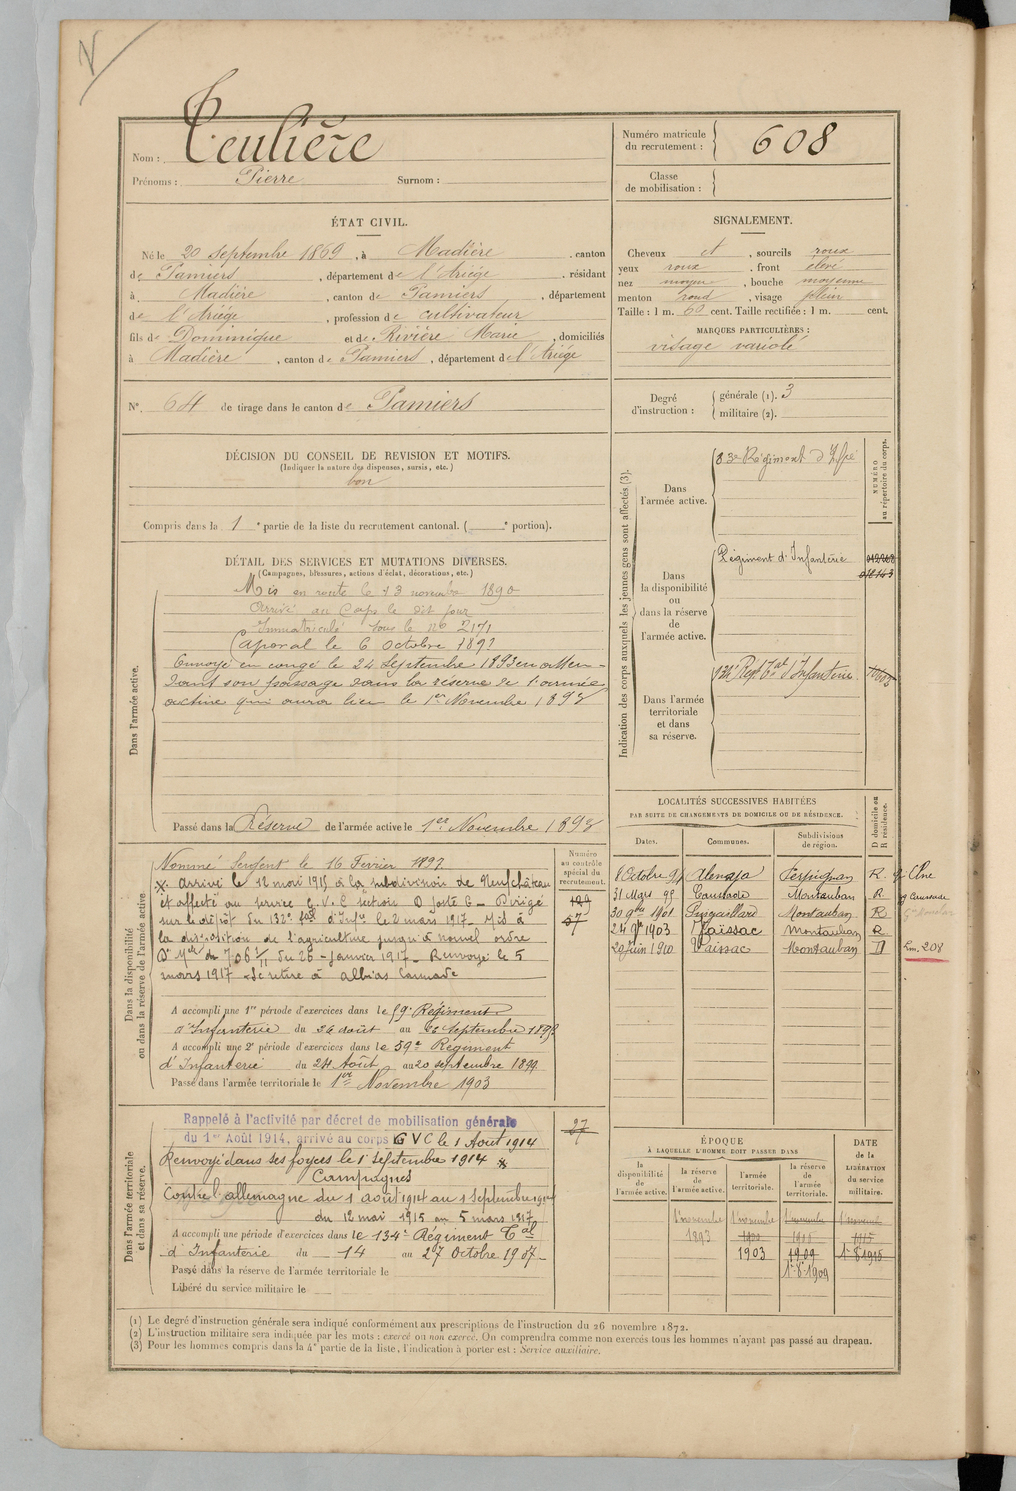 N
Nom : Teulière
Prénoms : Pierre Surnom :
Numéro matricule du recrutement : 608
Classe de mobilisation :
ÉTAT CIVIL.
Né le 20 septembre 1869, à Madière, canton
de Pamiers, département de l'Ariége, résidant
à Madière, canton de Pamiers, département
de l'Ariége, profession de cultivateur
fils de Dominique et de Rivière Marie, domiciliés
à Madière, canton de Pamiers, département de l'Ariége
SIGNALEMENT.
Cheveux et, sourcils roux
yeux roux, front élevé
nez moyen, bouche moyenne
menton rond, visage plein
Taille : 1 m. 60 cent. Taille rectifiée : 1 m. cent.
MARQUES PARTICULIÈRES :
visage variolé
N° 64 de tirage dans le canton de Pamiers
Degré d'instruction : générale (1). 3
militaire (2).
DÉCISION DU CONSEIL DE REVISION ET MOTIFS.
(Indiquer la nature des dispenses, sursis, etc.)
bon
Compris dans la 1e partie de la liste du recrutement cantonal. ( e portion).
DÉTAIL DES SERVICES ET MUTATIONS DIVERSES.
(Campagnes, blessures, actions d'éclat, décorations, etc.)
Dans l'armée active.
Mis en route le 13 novembre 1890
Arrivé au Corps le dit jour
Immatriculé sous le no 2171
Caporal le 6 octobre 1892
Envoyé en congé le 24 Septembre 1893 en atten-
dant son passage dans la réserve de l'armée
active qui aura lieu le 1er Novembre 1893
Passé dans la Réserve de l'armée active le 1er Novembre 1893
Indication des corps auxquels les jeunes gens sont affectés (3).
NUMÉRO au répertoire du corps.
Dans l'armée active.
83e Régiment d'Infie
Dans la disponibilité ou dans la réserve de l'armée active.
Régiment d'Infanterie
Dans l'armée territoriale et dans sa réserve.
132e Regt Tal d'Infanterie
Dans la disponibilité ou dans la réserve de l'armée active.
Numéro au contrôle spécial du recrutement.
Nommé Sergent le 16 Fevrier 1897.
* Arrivé le 12 mai 1915 à la subdivision de Neufchâteau
et affecté au service G.V.C section D poste 6 - Dirigé
sur le dépôt du 132e Tal d'Infie le 2 mars 1917. Mis à
la disposition de l'agriculture jusqu'à nouvel ordre
du 26 Janvier 1917 - Renvoyé le 5
mars 1917 se retire à Albias Caussade
67
A accompli une 1re période d'exercices dans le 59e Régiment
d'Infanterie du 26 août au 22 septembre 1896
A accompli une 2e période d'exercices dans le 59e Régiment
d'Infanterie du 24 Août au 20 septembre 1899
Passé dans l'armée territoriale le 1er Novembre 1903
LOCALITÉS SUCCESSIVES HABITÉES
PAR SUITE DE CHANGEMENTS DE DOMICILE OU DE RÉSIDENCE.
Dates. Communes. Subdivisions de région. D domicile ou R résidence.
8 Octobre 97 Alenya Perpignan R. gie Elne
31 Mars 99 Caussade Montauban R. gie Caussade
30 9bre 1901 Puygaillard Montauban R
24 9bre 1903 Vaïssac Montauban R.
29 juin 1910 Vaissac Montauban D Em. 208
Dans l'armée territoriale et dans sa réserve.
Rappelé à l'activité par décret de mobilisation générale
du 1er Août 1914, arrivé au corps GVC le 1 Aout 1914
Renvoyé dans ses foyers le 1er septembre 1914 *
Campagnes
Contre l'allemagne du 1 août 1914 au 1 Septembre 1914
du 12 mai 1915 au 5 mars 1917
A accompli une période d'exercices dans le 134e Régiment Tal
d'Infanterie du 14 au 27 Octobre 1907
Passé dans la réserve de l'armée territoriale le
Libéré du service militaire le
27
ÉPOQUE
À LAQUELLE L'HOMME DOIT PASSER DANS
DATE de la LIBÉRATION du service militaire.
la disponibilité de l'armée active. la réserve de l'armée active. l'armée territoriale. la réserve de l'armée territoriale.
1 novembre 1 novembre 1 novembre 1 novembre
1893 1900 1906 1915
1903 1909 1-8 1915
1-8-1909
(1) Le degré d'instruction générale sera indiqué conformément aux prescriptions de l'instruction du 26 novembre 1872.
(2) L'instruction militaire sera indiquée par les mots : exercé ou non exercé. On comprendra comme non exercés tous les hommes n'ayant pas passé au drapeau.
(3) Pour les hommes compris dans la 4e partie de la liste, l'indication à porter est : Service auxiliaire.